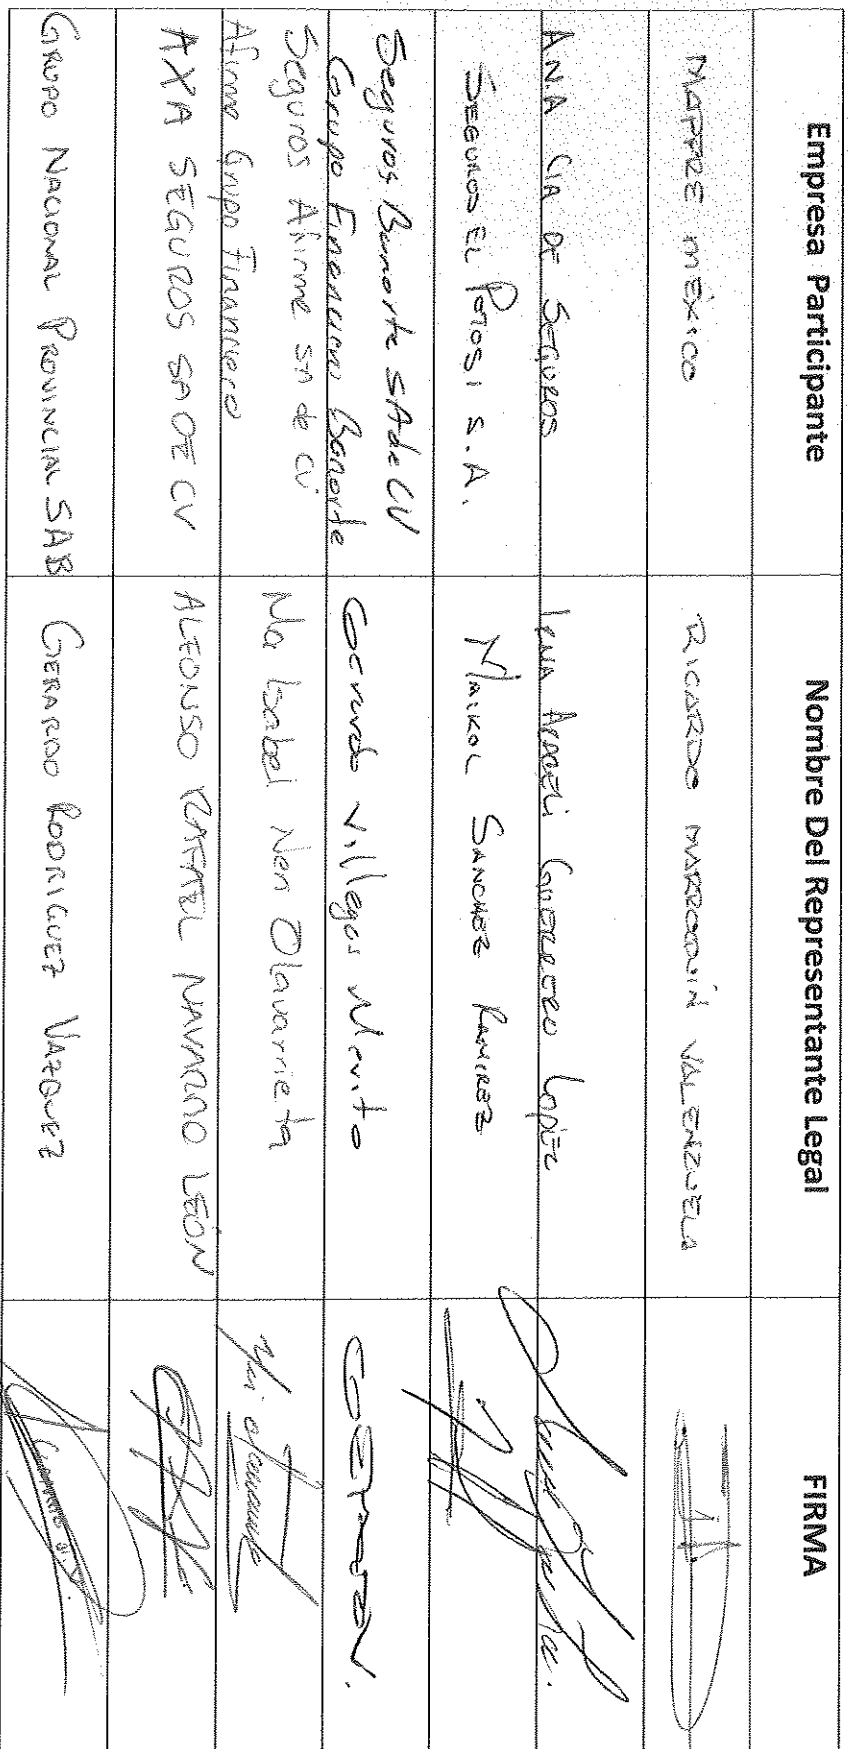 Empresa Participante
Nombre Del Representante Legal
FIRMA
MAPFRE MÉXICO
RICARDO MARROQUÍN VALENZUELA
A.N.A CIA DE SEGUROS
ARACELI GUERRERO LOPEZ
SEGUROS EL POTOSI S.A.
MAIKOL SANCHEZ RAMIREZ
Seguros Banorte SA de CV
Grupo Financiero Banorte
Gerardo Villegas
Seguros Afirme SA de CV
Afirme Grupo Financiero
Ma Isabel Neri Olavarrieta
AXA SEGUROS SA DE CV
ALFONSO RAFAEL NAVARRO LEÓN
GRUPO NACIONAL PROVINCIAL SAB
GERARDO RODRIGUEZ VAZQUEZ